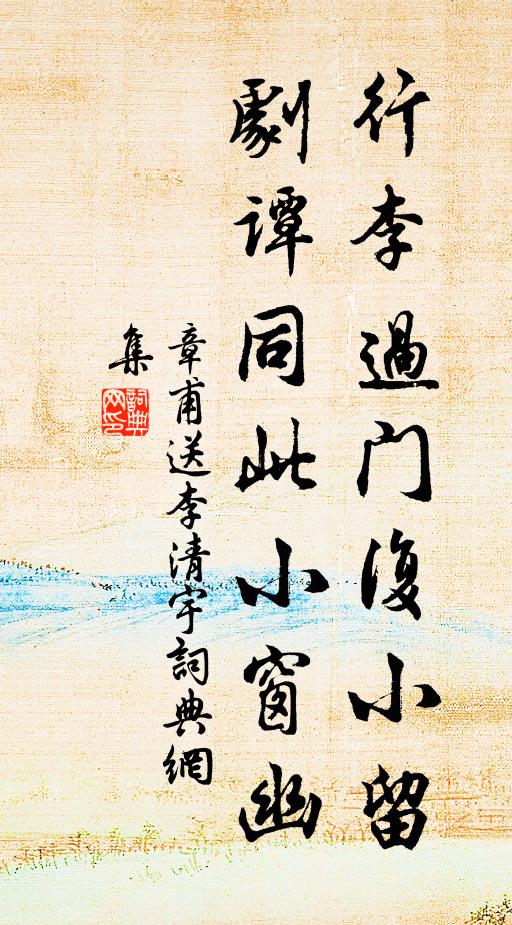 行李過门復小留
劇譚同此小窗幽
章甫送李清宇詞典網
集
詞典
网印